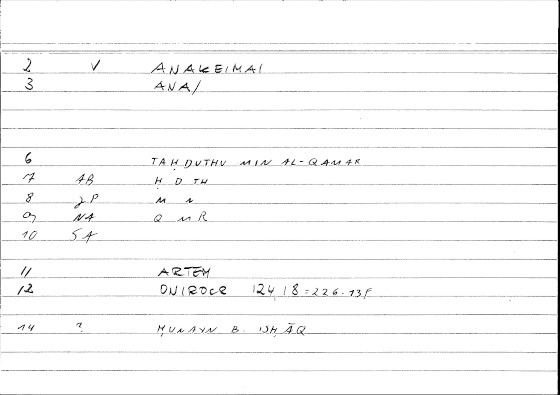 2 V ANAKEIMAI
3 ANA/
6 TAḤDUTHU MIN AL-QAMAR
7 AB Ḥ D TH
8 2P M N
9 NA Q M R
10 SA
11 ARTEM
12 ONIROCR 124,18=226.13F
14 ? ḤUNAYN B. ISḤĀQ